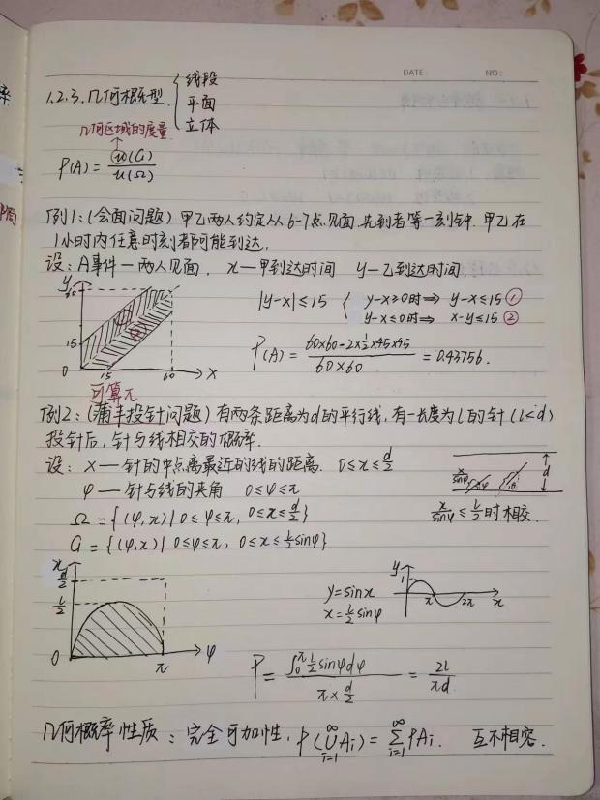 DATE: NO:
1.2.3.几何概型 { 线段
平面
立体
几何区域的度量
P(A)=u(G)/u(Ω)
例1:(会面问题)甲乙两人约定从6-7点见面,先到者等一刻钟.甲乙在
1小时内任意时刻都可能到达.
设:A事件—两人见面. x—甲到达时间 y—乙到达时间
y
60
15
0 15 60 x
|y-x|≤15 { y-x≥0时⇒ y-x≤15 ①
y-x≤0时⇒ x-y≤15 ②
P(A)=(60×60-2×1/2×45×45)/(60×60)=0.43756.
可算π
例2:(蒲丰投针问题)有两条距离为d的平行线,有一长度为l的针(l<d)
投针后,针与线相交的概率.
设:x—针的中点离最近的线的距离. 0≤x≤d/2
φ—针与线的夹角 0≤φ≤π
Ω={(φ,x)|0≤φ≤π, 0≤x≤d/2}
G={(φ,x)|0≤φ≤π, 0≤x≤l/2 sinφ}
x/sinφ φ d
x/sinφ≤l/2时相交.
x
d/2
l/2
0 π φ
y=sinx
x=l/2 sinφ
y
1
π 2π x
P=(∫₀^π l/2 sinφdφ)/(π×d/2)=2l/πd
几何概率性质:完全可加性,P(∪_{i=1}^∞ Ai)=∑_{i=1}^∞ PAi. 互不相容.